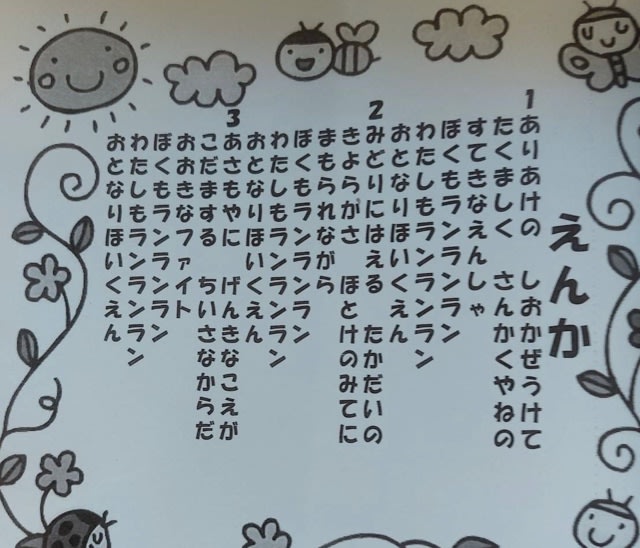 えんか
1 ありあけの しおかぜうけて
たくましく さんかくやねの
すてきなえんしゃ
ぼくもランランラン
わたしもランランラン
おとなりほいくえん
2 みどりにはえる たかだいの
きよらがさ ほとけのみてに
まもられながら
ぼくもランランラン
わたしもランランラン
おとなりほいくえん
3 あさもやに げんきなこえが
こだまする ちいさなからだ
おおきなファイト
ぼくもランランラン
わたしもランランラン
おとなりほいくえん